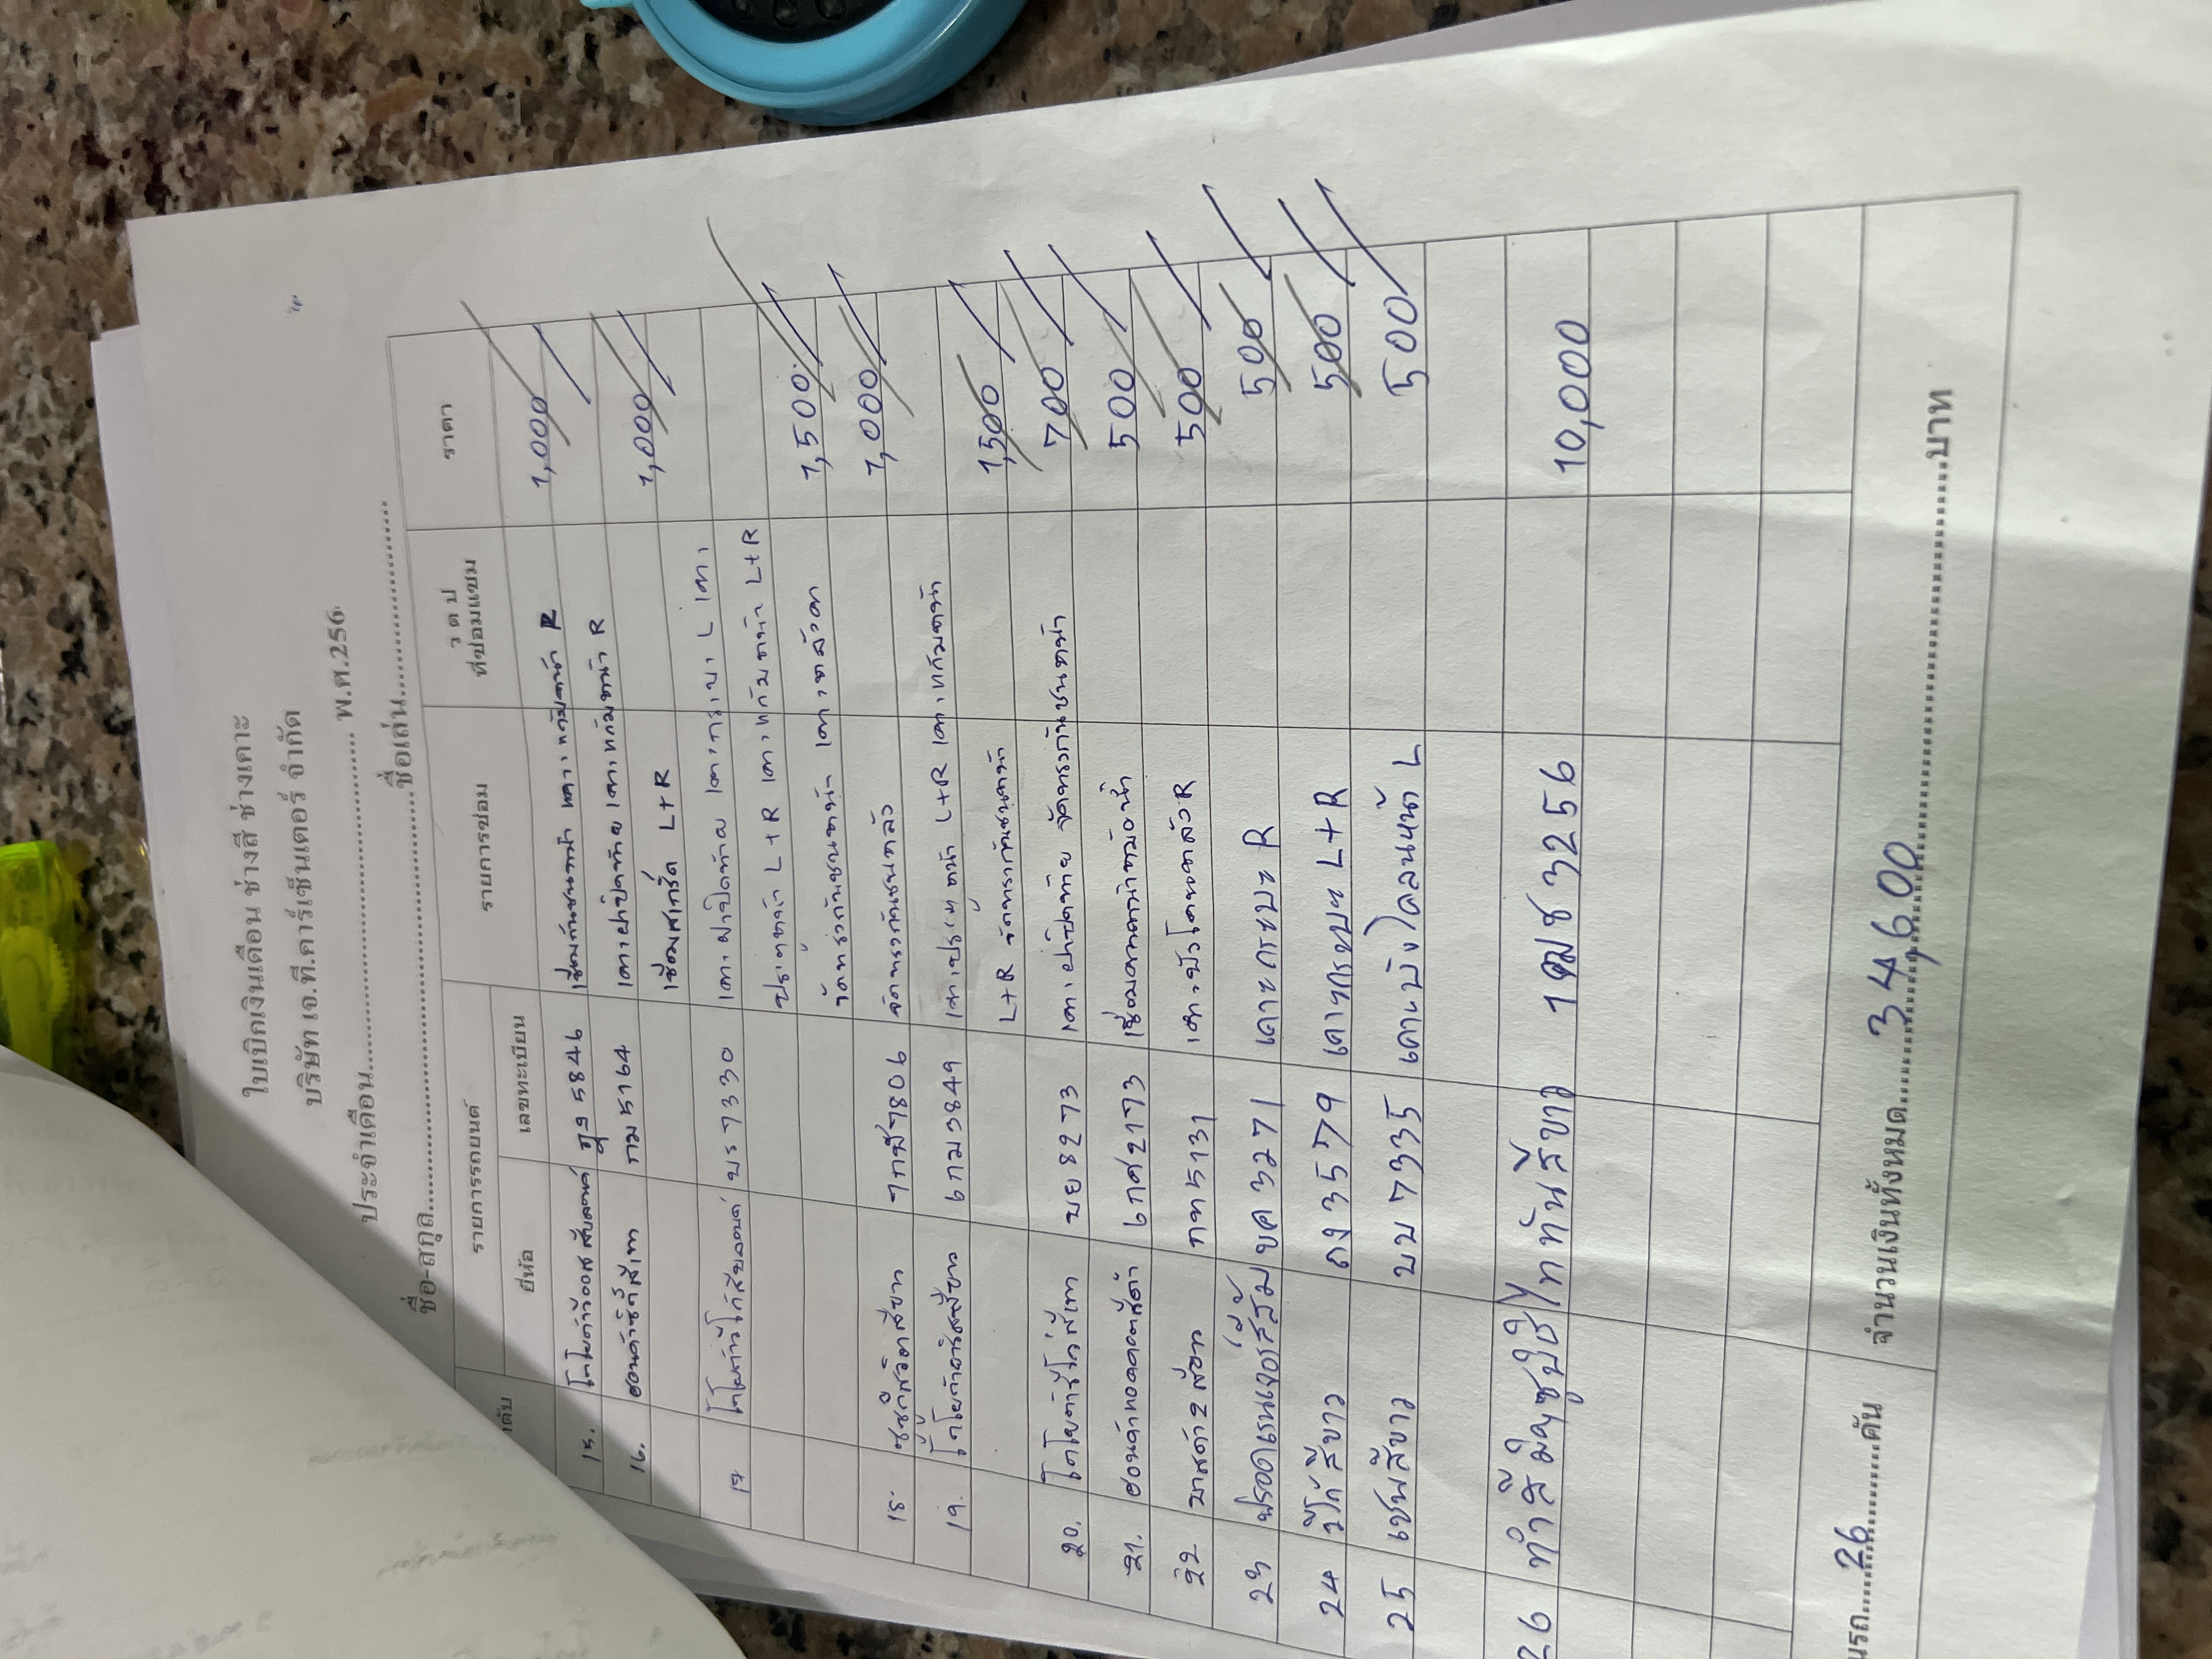 ใบเบิกเงินเดือน ช่างสี ช่างเคาะ
บริษัท เจ.ที.คาร์เซ็นเตอร์ จำกัด
ประจำเดือน............ พ.ศ.256
ชื่อ-สกุล............ชื่อเล่น............
รายการรถยนต์ รายการซ่อม ว ด ป ราคา
ยี่ห้อ เลขทะเบียน ที่ซ่อมแซม
15. 5846 เชื่อมกันชนหน้า เคาะแก้มหน้า R 1,000
16. ฮอนด้าซิตี้สีเทา กม 5164 เคาะฝาปิดท้าย เคาะแก้มหน้า R 1,000
เชื่อมสเกิร์ต L+R
17 โตโยต้าวีโก้สีบลอนด์ บร 7330 เคาะฝาปิดท้าย เคาะกระบะ L เคาะ
ประตูหน้า L+R เคาะแก้มหน้า L+R
จัดทรงกันชนหน้า เคาะหลังคา 1,500
18. ซูซูกิสวิฟสีขาว 7806 จัดทรงกันชนหลัง 1,000
19. โตโยต้ายาริสสีขาว 6กม 3849 เคาะประตูหน้า L+R เคาะแก้มหน้า
L+R จัดทรงกันชนหน้า 1,500
20. โตโยต้าวีโก้สีเทา บย 8273 เคาะฝาปิดท้าย จัดทรงกันชนหน้า 700
21. ฮอนด้าแอคคอดสีดำ 6กศ 2173 เชื่อมคานหน้าหม้อน้ำ 500
22 มาสด้า 2 สีขาว กท 5131 เคาะบังโคลนหลัง R 500
23 ฟรอดเรนเจอร์สีส้ม ขค 3271 เคาะกระบะ R 500
24 วีโก้สีขาว ถง 3579 เคาะกระบะ L+R 500
25 เชฟสีขาว บบ 7335 เคาะบังโคลนหน้า L 500
26 ทำสีมิตซูบิชิไททันสีขาว 1ฒช 3256 10,000
นรถ....26....คัน จำนวนเงินทั้งหมด....34,600....บาท